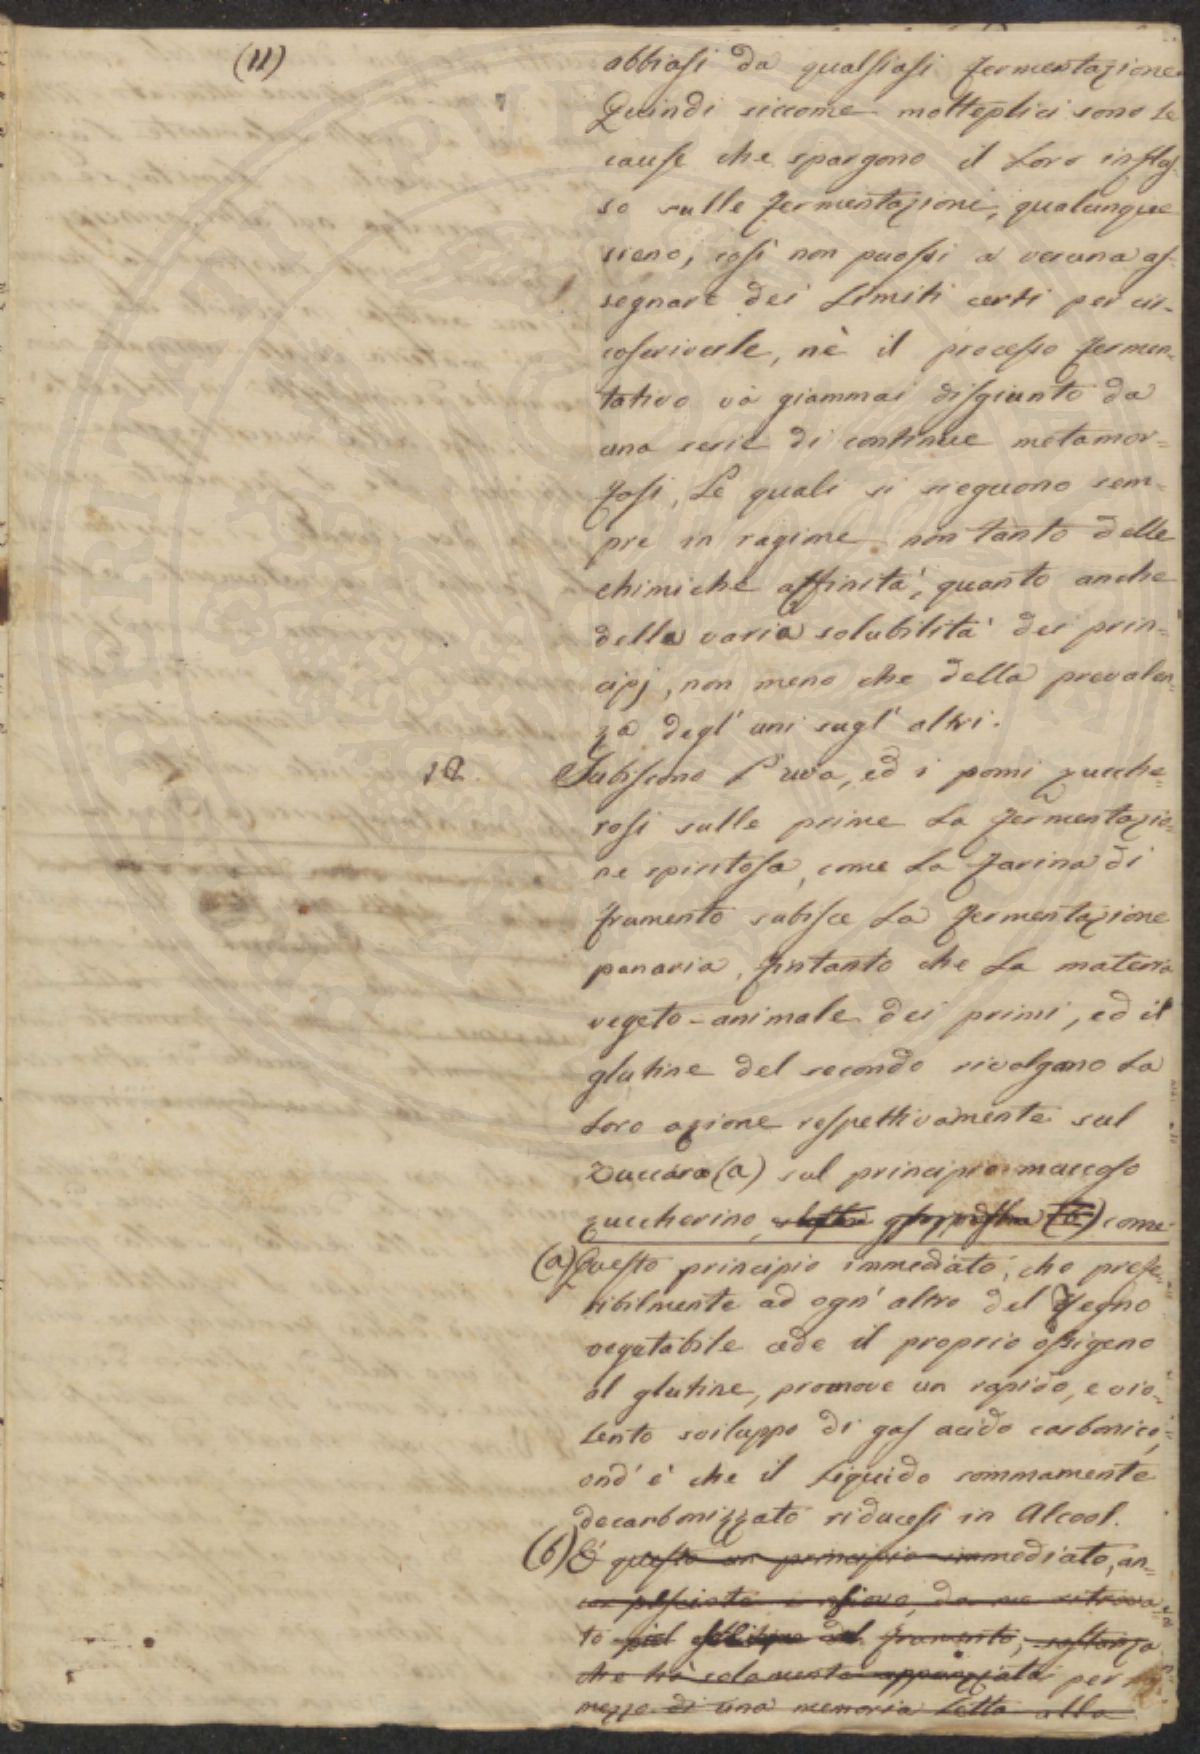 (11)
abbiasi da qualsiasi fermentazione.
Quindi siccome molteplici sono le
cause che spargono il loro influs-
so sulle fermentazioni, qualunque
sieno, così non puossi a veruna as-
segnare dei limiti certi per cir-
coscriverle, nè il processo fermen-
tativo và giammai disgiunto da
una serie di continue metamor-
fosi, le quali si sieguono sem-
pre in ragione non tanto delle
chimiche affinità, quanto anche
della varia solubilità dei prin-
cipj, non meno che della prevalen-
za degl' uni sugl' altri.
12. Subiscono l'uva, ed i pomi zucche-
rosi sulle prime la fermentazio-
ne spiritosa, come la farina di
frumento subisce la fermentazione
panaria, fintanto che la materia
vegeto-animale dei primi, ed il
glutine del secondo rivolgano la
loro azione respettivamente sul
zuccaro (a) sul principio muccoso
zuccherino, come
(a) Questo principio immediato, che prefe-
ribilmente ad ogn' altro del Regno
vegetabile cede il proprio ossigeno
al glutine, promove un rapido, e vio-
lento sviluppo di gas acido carbonico,
ond' è che il liquido sommamente
decarbonizzato riducesi in Alcool.
(b) È questo un principio immediato, an-
da me ritrova-
to nel del frumento, sostanza
che hò solamente appunziata per
mezzo di una memoria letta alla